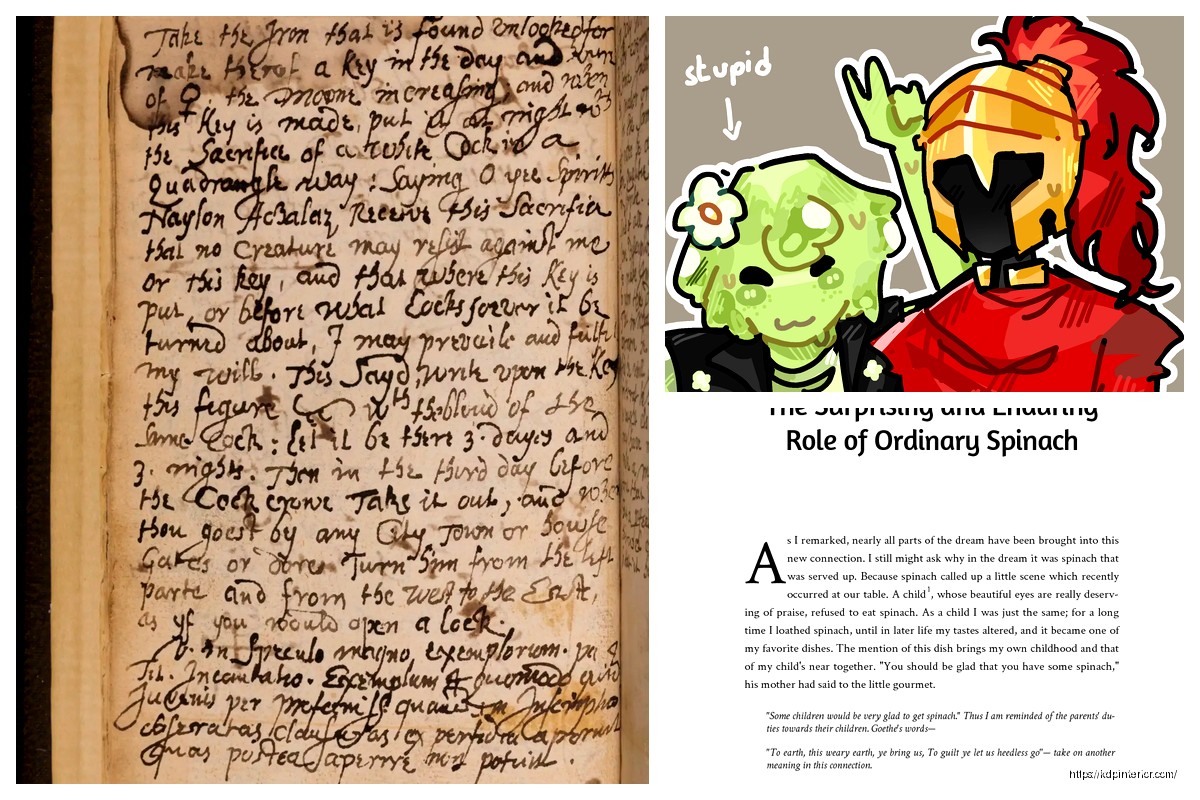 Take the Iron that is found unlooked for
make therof a key in the day and
of ♀ the Moone increasing and when
this key is made, put it at night
the Sacrifice of a white Cock in a
quadrangle way : Saying O yee Spirits
Naylon Acbalaz, Receive this Sacrifice
that no Creature may resist against me
or this key, and that where this key is
put, or before what Locks soever it be
turned about, I may prevaile and fulfi
my will. This Sayd, write upon the key
this figure wth the bloud of the
Same Cock : Let it be there 3. dayes and
3. nights. Then in the third day before
the Cock crowe Take it out, and when
thou goest by any City Town or house
Gates or dores Turn him from the left
parte and from the west to the East,
as yf you would open a lock.
In Speculo magno exemplorum.
Tit. Incantatio. Exemplum quomodo
Juvenis per
obseratas
quas postea aperire non potuit.
stupid
The Surprising and Enduring
Role of Ordinary Spinach
As I remarked, nearly all parts of the dream have been brought into this
new connection. I still might ask why in the dream it was spinach that
was served up. Because spinach called up a little scene which recently
occurred at our table. A child¹, whose beautiful eyes are really deserv-
ing of praise, refused to eat spinach. As a child I was just the same; for a long
time I loathed spinach, until in later life my tastes altered, and it became one of
my favorite dishes. The mention of this dish brings my own childhood and that
of my child's near together. "You should be glad that you have some spinach,"
his mother had said to the little gourmet.
"Some children would be very glad to get spinach." Thus I am reminded of the parents' du-
ties towards their children. Goethe's words—
"To earth, this weary earth, ye bring us, To guilt ye let us heedless go"— take on another
meaning in this connection.
https://kdpinterior.com/